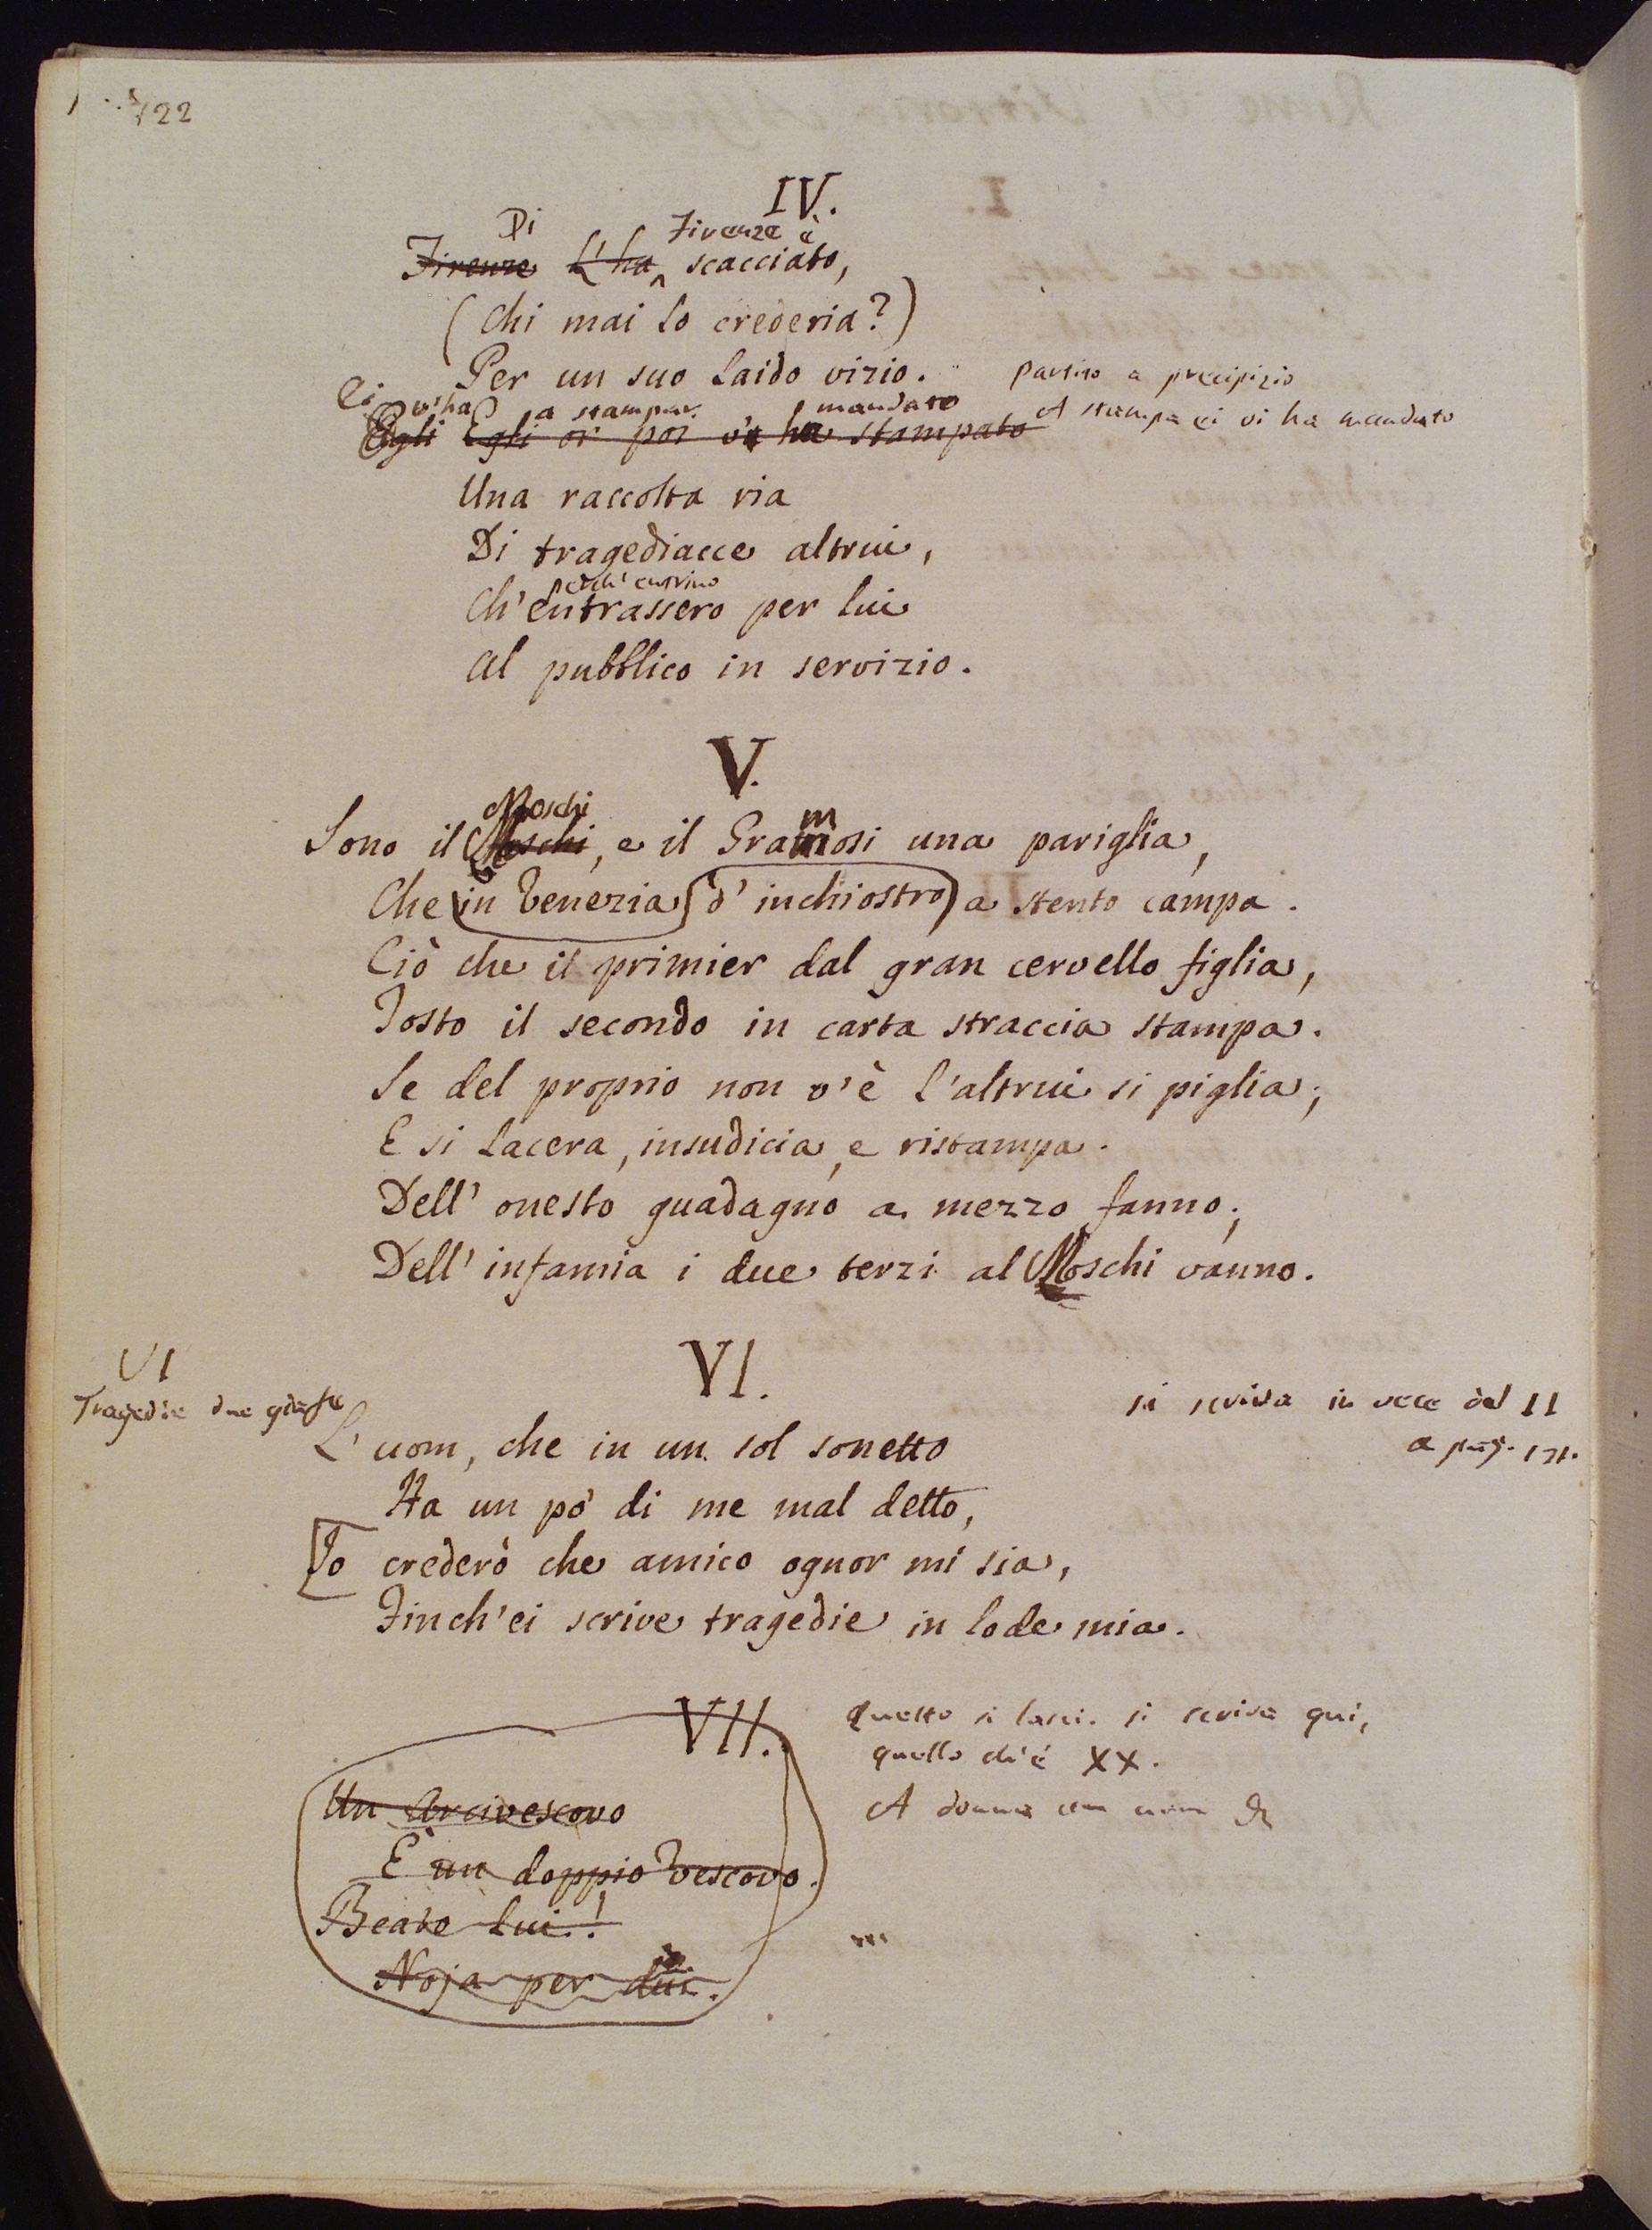 122
IV.
Di Firenze è
Firenze L'ha scacciato,
(Chi mai lo crederia?)
Per un suo laido vizio. partito a precipizio
Ei v'ha a stampar. mandato A stampa ei vi ha mandato
Egli Egli or poi v'ha stampato
Una raccolta ria
Di tragediacce altrui,
perch' entrino
Ch'entrassero per lui
Al pubblico in servizio.
V.
Moschi m
Sono il Moschi, e il Gramosi una pariglia,
Che in Venezia d'inchiostro a stento campa.
Ciò che il primier dal gran cervello figlia,
Tosto il secondo in carta straccia stampa.
Se del proprio non v'è l'altrui si piglia;
E si lacera, insudicia, e ristampa.
Dell' onesto guadagno a mezzo fanno;
Dell' infamia i due terzi al Moschi vanno.
VI VI.
Tragedie due si scriva in vece del II
a pag. 121.
L'uom, che in un sol sonetto
Ha un pò di me mal detto,
Io crederò che amico ognor mi sia,
Finch'ei scrive tragedie in lode mia.
VII. Questo si lasci. si scriva qui,
quello ch'è XX.
Un Arcivescovo A donna
È un doppio Vescovo.
Beato lui!
Noja per dui.